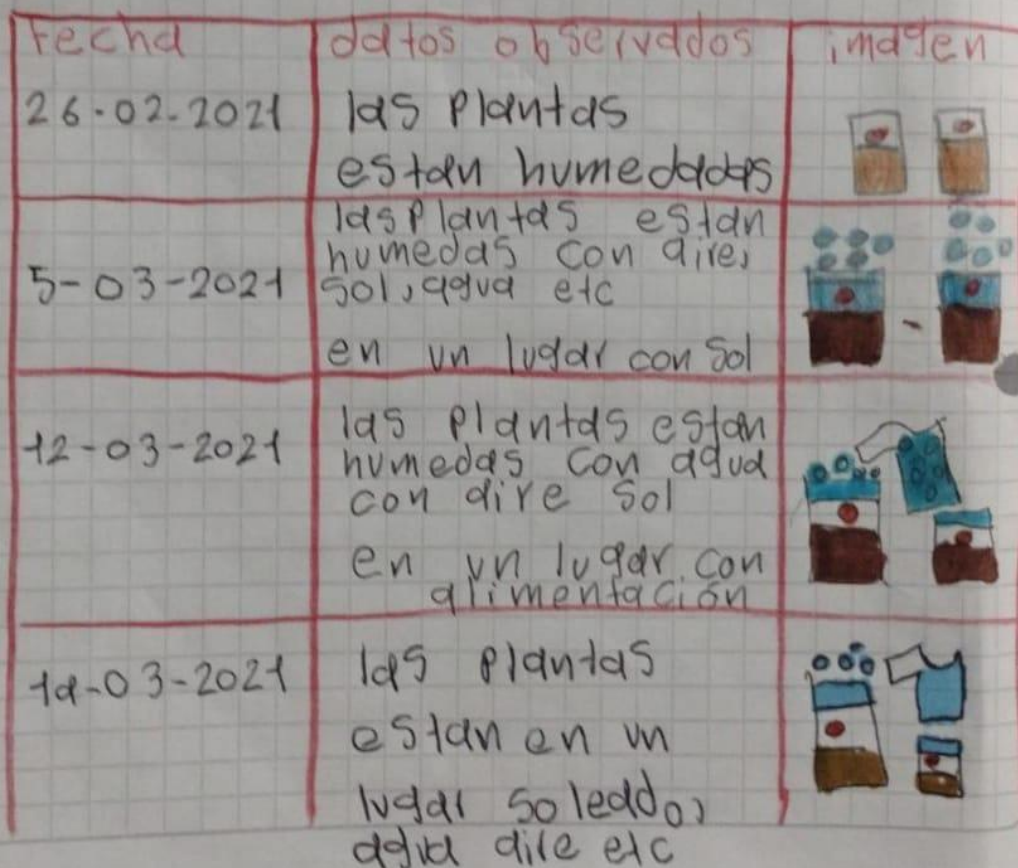 fecha datos observados imagen
26-02-2021
las plantas
estan humedadas
5-03-2021
las plantas estan
humedas con aire,
sol, agua etc
en un lugar con sol
12-03-2021
las plantas estan
humedas con agua
con aire sol
en un lugar con
alimentación
19-03-2021
las plantas
estan en un
lugar soleado,
agua aire etc